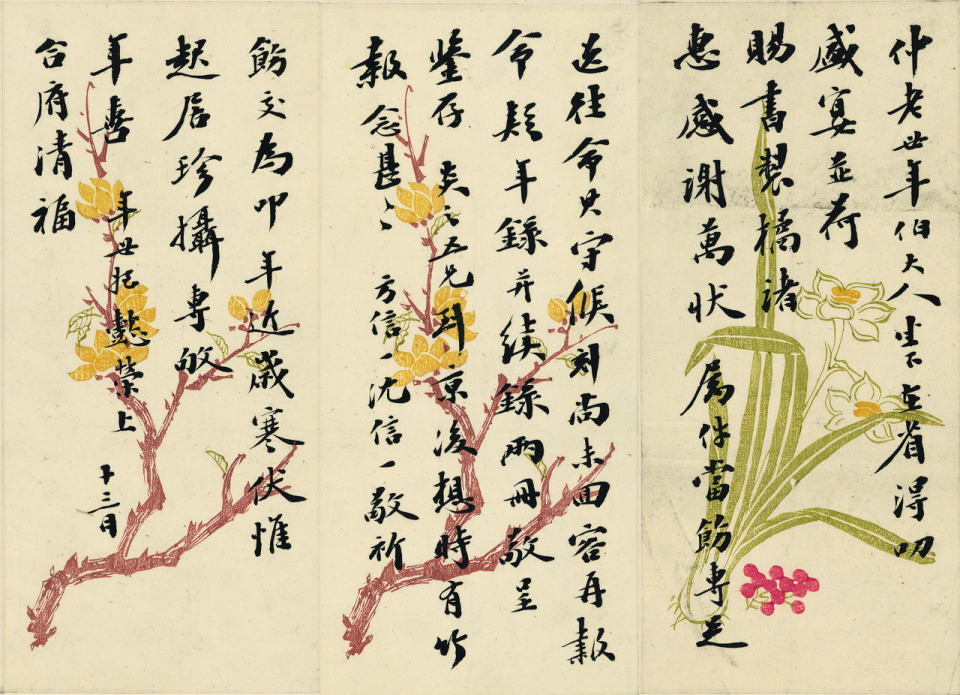 仲老世年伯大人坐下在省得叨
盛宴並荷
賜書製橘諸
惠感謝萬狀屬件當飭專足
送往命其守候刻尚未回容再報
命疑年錄并續錄兩冊敬呈
鑒存炎之五兄到京後想時有竹
報念甚〻方信一沈信一敬祈
飭交為叩年近歲寒伏惟
起居珍攝專敬
年喜年世姪懿榮上十三日
合府清福